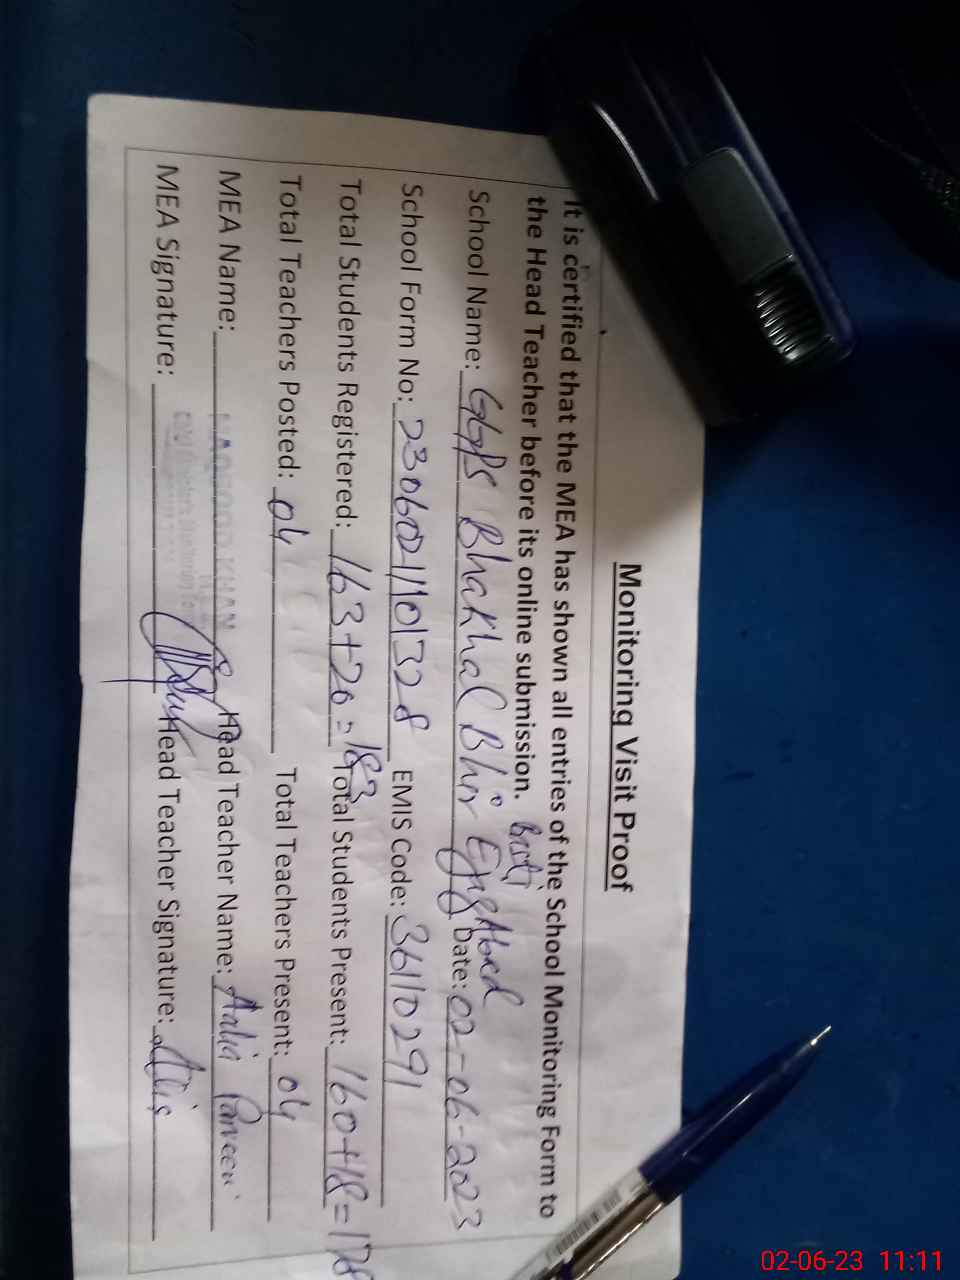 Monitoring Visit Proof
It is certified that the MEA has shown all entries of the School Monitoring Form to
the Head Teacher before its online submission. Basti
School Name: GGPS Bhakhal Bhir Date: 02-06-2023
School Form No: EMIS Code: 36110291
Total Students Registered: 163+20=183 Total Students Present: 160+18=178
Total Teachers Posted: 04 Total Teachers Present: 04
MEA Name: KHAN Head Teacher Name: Aalia Parveen
MEA Signature: Head Teacher Signature:
02-06-23 11:11